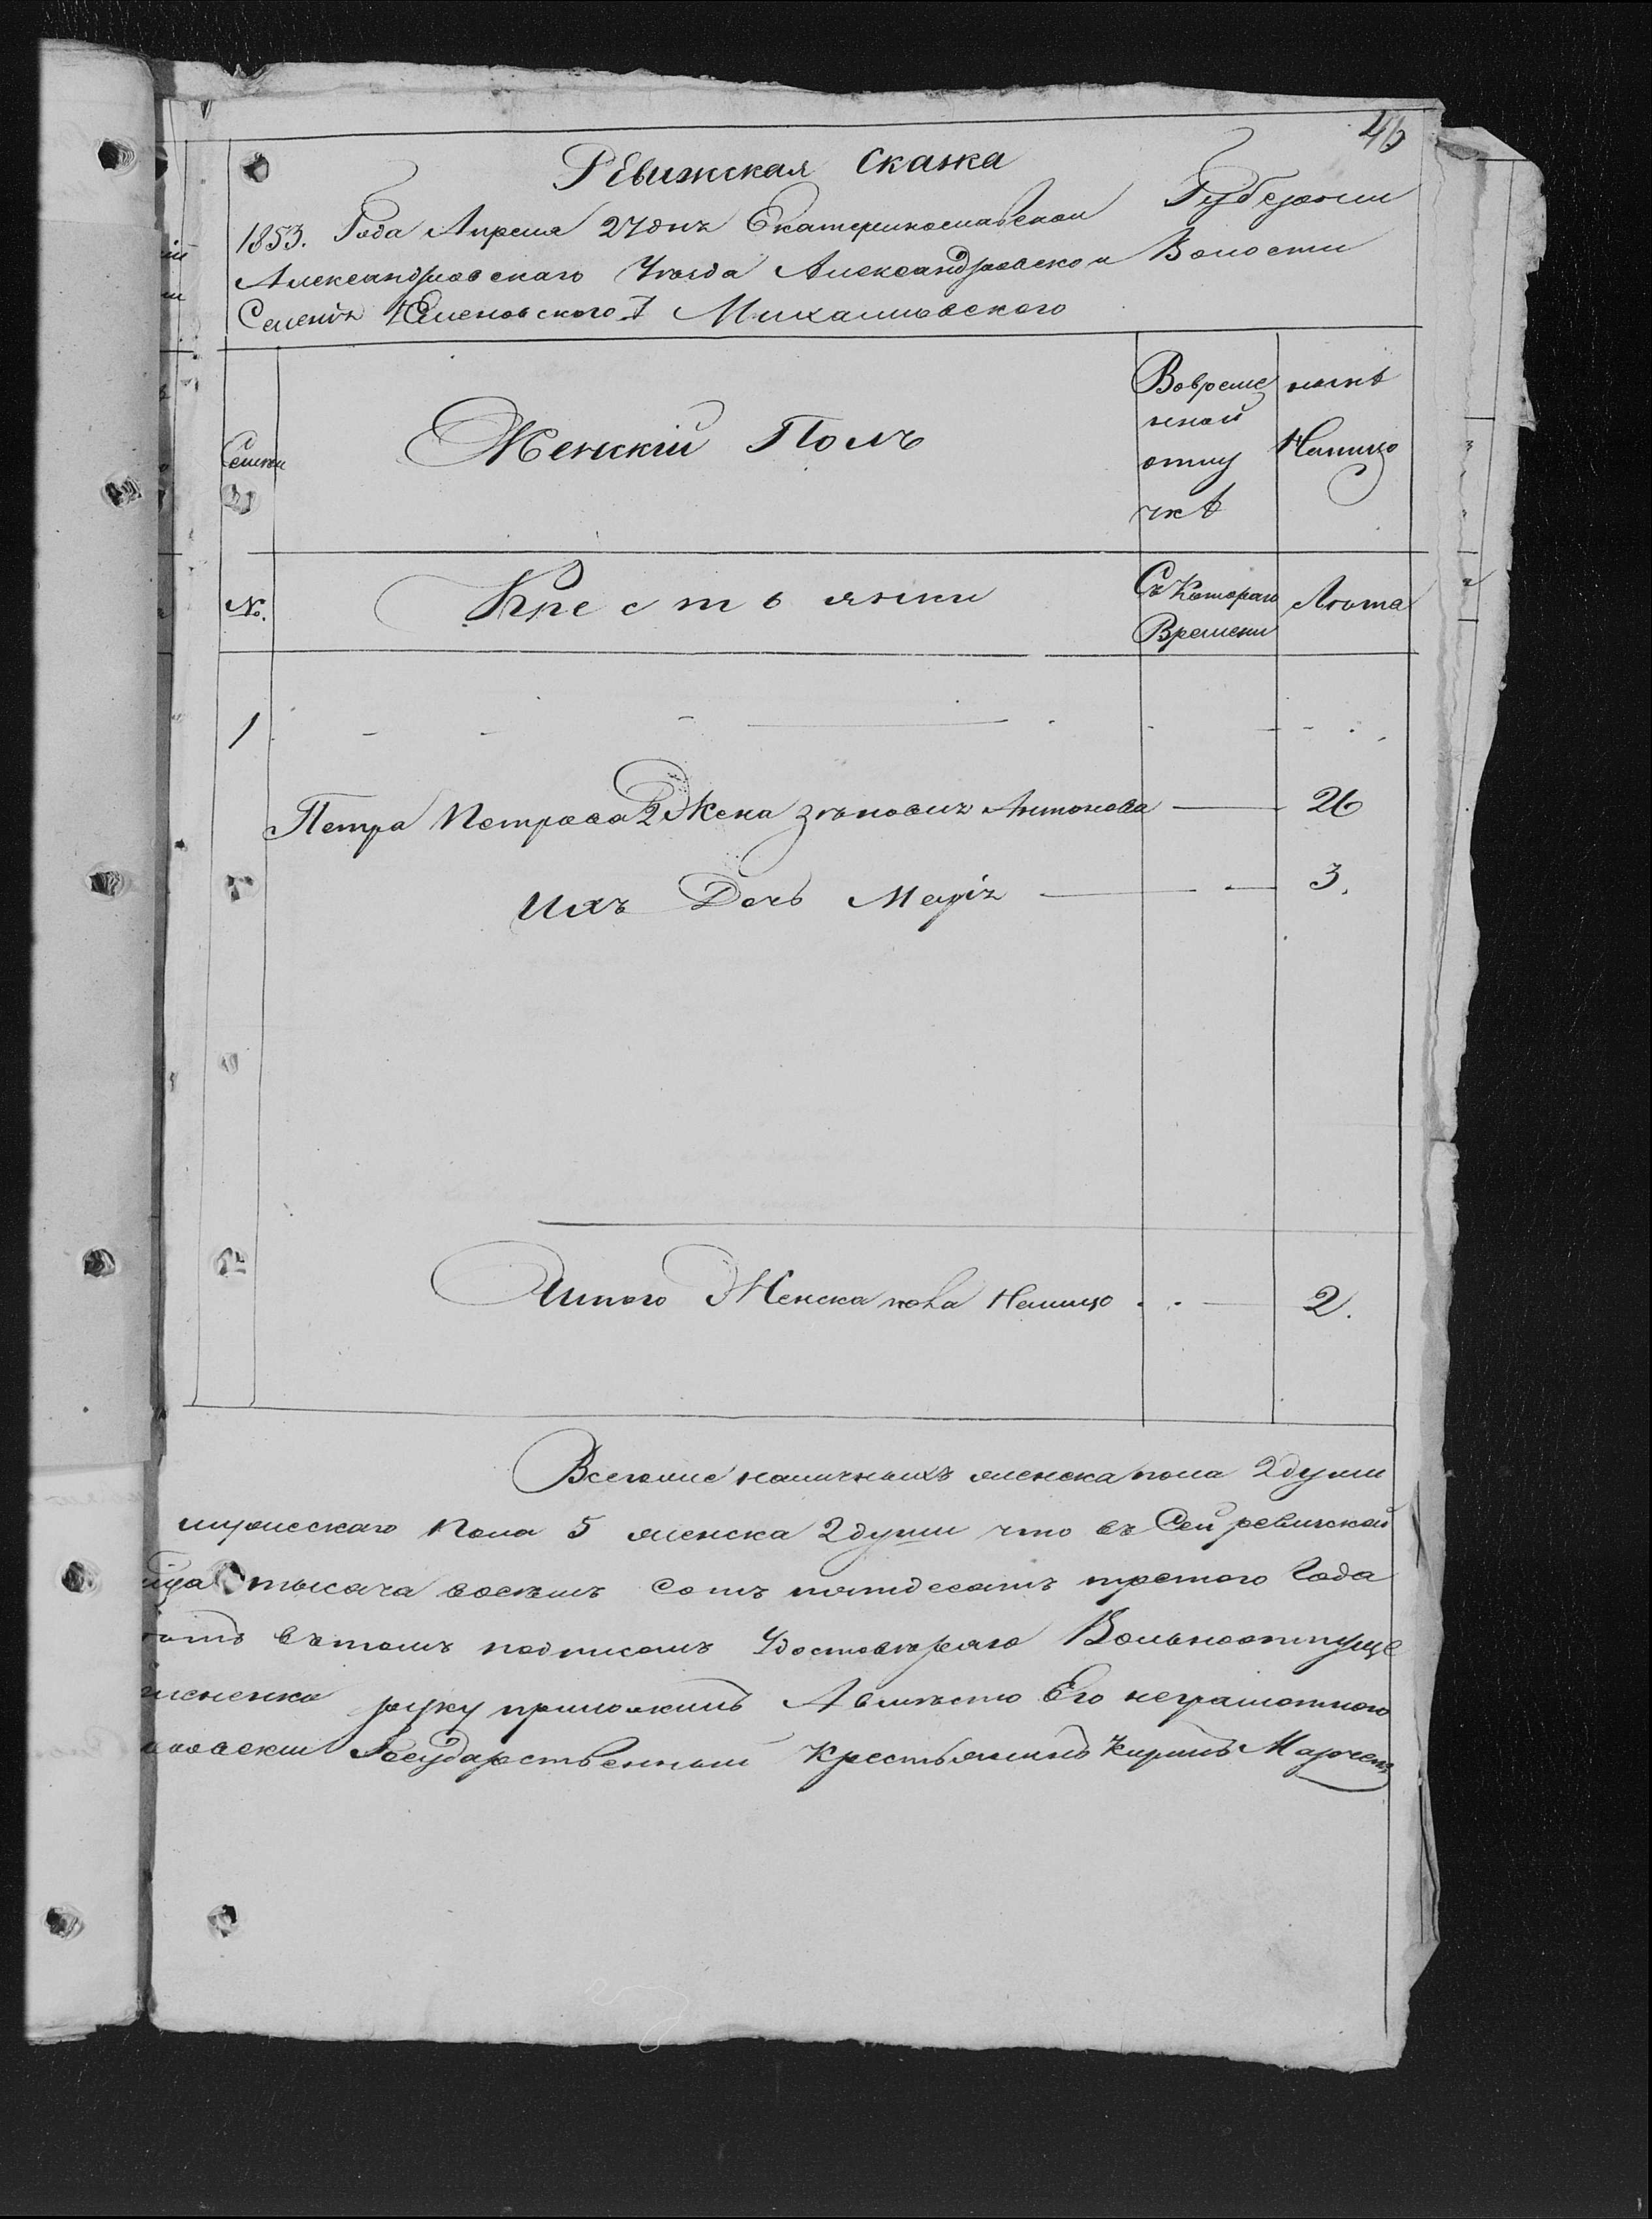 46
РЕвижская Скажка
1853. Года Апреля 27 дня Екатеринославской Губернии
Александровскаго Уезда Александровской Волости
Селения Еленовского I Михаиловского
Семьи
Женскій Полъ
Вовреме
нной
отлу
чкѣ
нынѣ
Налицо
№.
Крестьянки
Съ Котораго
Времени
Лѣта
1
Петра Петрова 2 Жена Антонова 26
Ихъ Дочь 3.
Итого Женска пола Налицо 2.
Всеголис наличныхъ женска пола 2 души
мужескаго пола 5 женска 2 души что въ Сей ревижской
тысяча восемъ Сотъ пятдесятъ третого Года
вътомъ подписомъ Удостоверяю Вольноотпуще
руку приложилъ Авместо Его неграмотного
Государственный Крестьянинъ Кирилъ Марчен